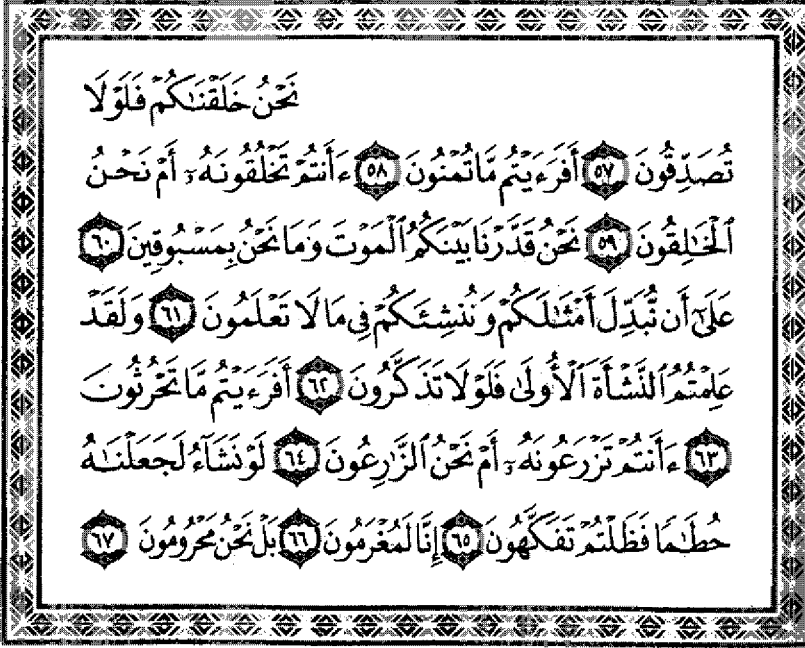 نَحْنُ خَلَقْنَٰكُمْ فَلَوْلَا
تُصَدِّقُونَ ٥٧ أَفَرَءَيْتُم مَّا تُمْنُونَ ٥٨ ءَأَنتُمْ تَخْلُقُونَهُۥٓ أَمْ نَحْنُ
ٱلْخَٰلِقُونَ ٥٩ نَحْنُ قَدَّرْنَا بَيْنَكُمُ ٱلْمَوْتَ وَمَا نَحْنُ بِمَسْبُوقِينَ ٦٠
عَلَىٰٓ أَن نُّبَدِّلَ أَمْثَٰلَكُمْ وَنُنشِئَكُمْ فِى مَا لَا تَعْلَمُونَ ٦١ وَلَقَدْ
عَلِمْتُمُ ٱلنَّشْأَةَ ٱلْأُولَىٰ فَلَوْلَا تَذَكَّرُونَ ٦٢ أَفَرَءَيْتُم مَّا تَحْرُثُونَ
٦٣ ءَأَنتُمْ تَزْرَعُونَهُۥٓ أَمْ نَحْنُ ٱلزَّٰرِعُونَ ٦٤ لَوْ نَشَآءُ لَجَعَلْنَٰهُ
حُطَٰمًا فَظَلْتُمْ تَفَكَّهُونَ ٦٥ إِنَّا لَمُغْرَمُونَ ٦٦ بَلْ نَحْنُ مَحْرُومُونَ ٦٧